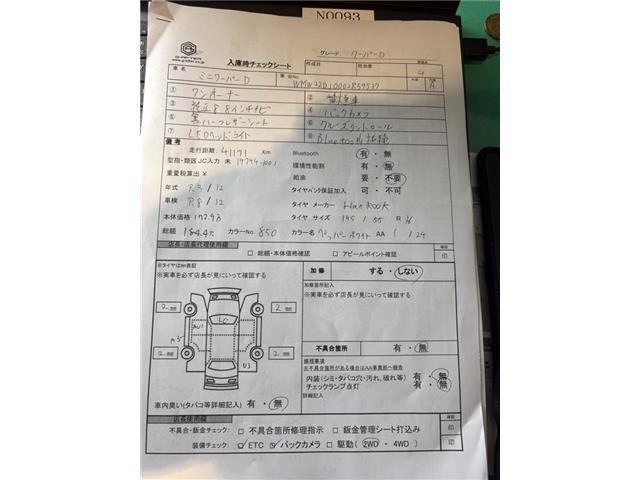 N0093
グレード クーパーD
入庫時チェックシート 作成日 担当者 4
車名 ミニクーパーD 車台No A
① ワンオーナー ② 禁煙車
③ 純正8.8インチナビ ④ バックカメラ
⑤ 黒ハーフレザーシート ⑥ クルーズコントロール
⑦ LEDヘッドライト ⑧ Bluetooth接続
備考
走行距離 41171 Km Bluetooth 有・無
型指・類区JC入力 未 19794-1001 環境性能割 有・無
重量税算出 ¥ 給油 要・不要
年式 R3/12 タイヤパンク保証加入 可・不可
車検 R8/12 タイヤ メーカー Hankook
本体価格 172.9万 タイヤ サイズ 195/55 R16
総額 184.4万 カラーNo. 850 カラー名 ペッパーホワイト AA 1/24
店長・店長代理使用欄 □ 総額・本体価格確認 □ アピールポイント確認 確認 印
※タイヤはmm表記
※実車を必ず店長が見にいって確認する
加修 する・しない
加修箇所記入
※実車を必ず店長が見にいって確認する
2 mm 2 mm
AU1 LC
A3
2 mm U3 2 mm
不具合箇所 有・無
修理事項
※不具合箇所がある場合はAA事業部へ報告
内装(シミ・タバコ穴・汚れ、破れ等) 有・無
チェックランプ点灯 有・無
詳細記入
車内臭い(タバコ等詳細記入) 有・無
店長使用欄 確認
不具合・鈑金チェック: □ 不具合箇所修理指示 □ 鈑金管理シート打込み 印
装備チェック: ☑ ETC ☑ バックカメラ □ 駆動 (2WD・4WD) 印